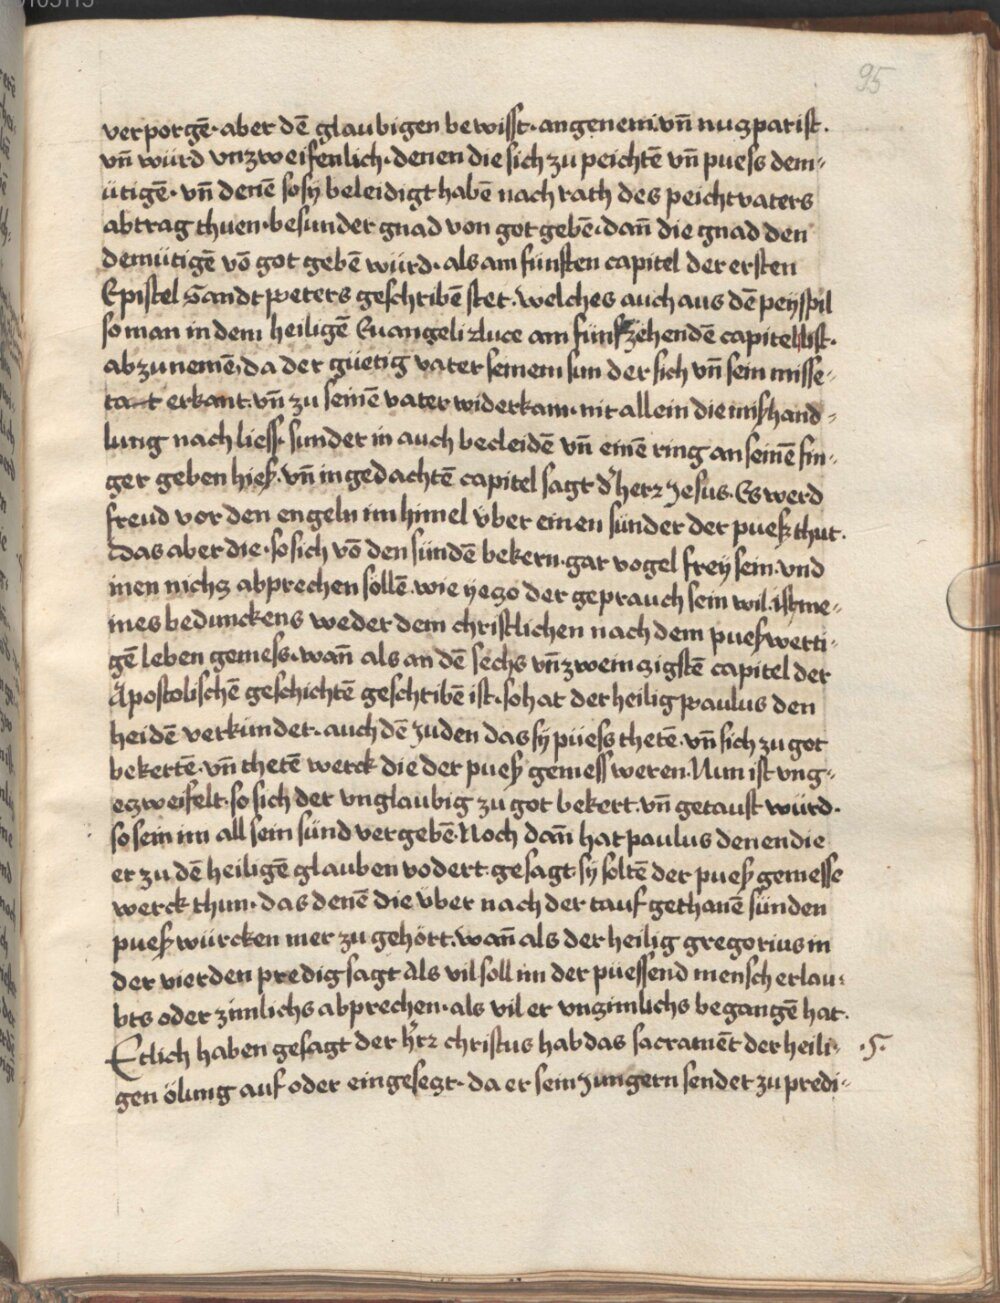 95
verporgē· aber dē glaubigen bewisst· angenem· vn̄ nuczpar ist·
vn̄ würd vnzweifenlich· denen die sich zu peichtē vn̄ puess dem-
ütigē· vn̄ denē so sÿ beleidigt habē nach rath des peichtvaters
abtrag thuen· besunder gnad von got gebē· dan̄ die gnad den
demütigē vō got gebē würd· als am fünften capitel der ersten
Epistel Sandt peters geschribē stet· welches auch aus dē peyspil
so man in dem heiligē Euangeli luce am fünfzehendē capitel list·
abzunemē, da der güetig vater seinem sun der sich vn̄ sein misse-
tat erkant· vn̄ zu seinē vater widerkam· nit allein die miszhand-
lung nach liess· sunder in auch becleidē vn̄ einē ring an seinē fin-
ger geben hiesz· vn̄ in gedachtē capitel sagt d' herz Jesus· Es werd
freud vor den engeln im himel vber einen sünder der puesz thut·
das aber die· so sich vō den sündē bekern· gar vogel freÿ sein· vnd
inen nichz abprechen sollē· wie yeczo der geprauch sein wil· ist me-
ines beduncke̅ns weder dem christlichen nach dem puesz wetti-
gē leben gemess· wan̄ als an dē sechs vn̄ zweinzigstē capitel der
Apostolischē geschichtē geschribē ist· so hat der heilig paulus den
heidē verkündet· auch dē Juden das sÿ püess thetē· vn̄ sich zu got
bekertē· vn̄ thetē werck die der puesz gemess weren· Nun ist vng-
ezweifelt· so sich der vnglaubig zu got bekert· vn̄ getauft würd·
so sein im all sein sünd vergebē· Noch dan̄ hat paulus denen die
er zu dē heiligē glauben vodert· gesagt sÿ soltē der puesz gemesse
werck thun· das denē die vber nach der tauf gethanē sünden
puesz würcken mer zu gehört· wan̄ als der heilig gregorius in
der vierden predig sagt als vil soll im der püessend mensch erlau-
bts oder zimlichs abprechen· als vil er vnzimlichs begangē hat·
Etlich haben gesagt der h'rz christus hab das sacramēt der heili-
·5·
gen ölung auf oder eingesezt· da er sein Jungern sendet zu predi-